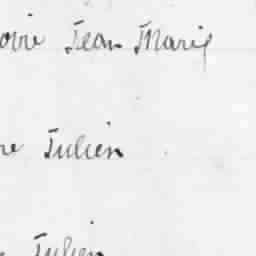 Jean Marie
Julien
Julien